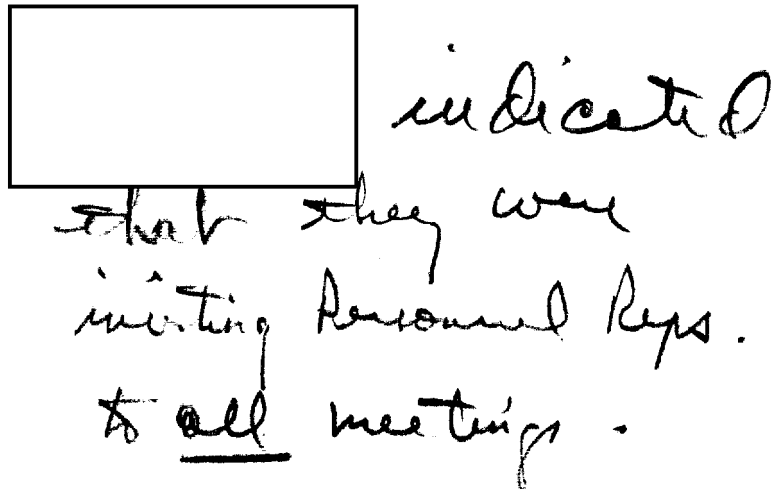 indicated
that they were
inviting Personnel Reps.
to all meetings.